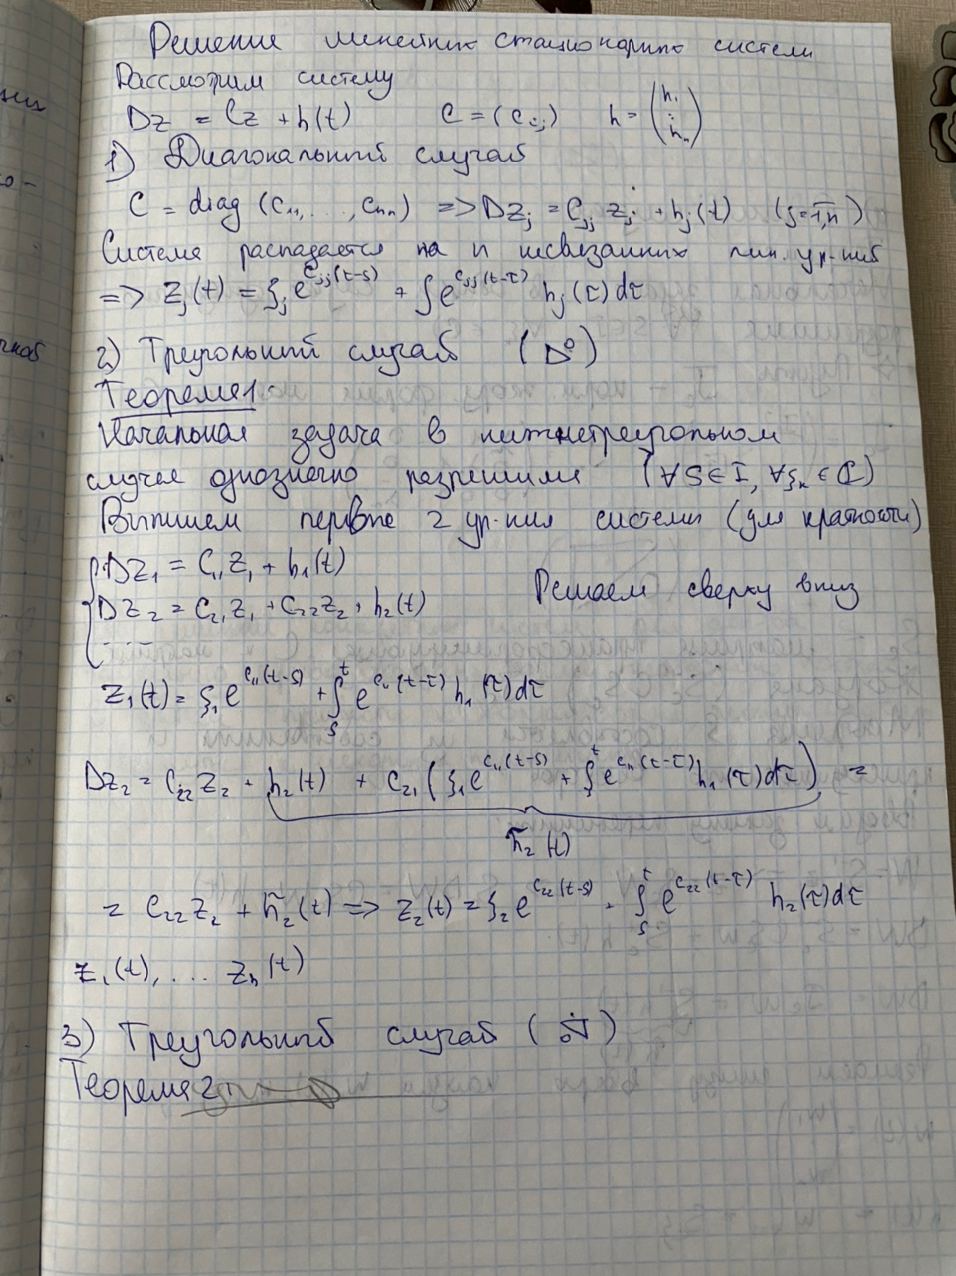 Решение линейных стационарных систем
Рассмотрим систему
Dz = Cz + h(t)   C = (c_ij)   h = (h_1 ⋮ h_n)
1) Диагональный случай
C = diag (c_11, ..., c_nn) => Dz_j = c_jj z_j + h_j(t)   (j = 1,n)
Система распадается на n несвязанных лин. ур-ний
=> z_j(t) = ξ_j e^{c_jj(t-s)} + ∫ e^{c_jj(t-τ)} h_j(τ)dτ
2) Треугольный случай
Теорема 1.
Начальная задача в нижнетреугольном
случае однозначно разрешима (∀s∈I, ∀ξ_k ∈ ℂ)
Выпишем первые 2 ур-ния системы (для краткости)
Dz_1 = c_11 z_1 + h_1(t)
Dz_2 = c_21 z_1 + c_22 z_2 + h_2(t)   Решаем сверху вниз
.....
z_1(t) = ξ_1 e^{c_11(t-s)} + ∫_s^t e^{c_11(t-τ)} h_1(τ)dτ
Dz_2 = c_22 z_2 + h_2(t) + c_21 (ξ_1 e^{c_11(t-s)} + ∫_s^t e^{c_11(t-τ)} h_1(τ)dτ) =
h̃_2(t)
= c_22 z_2 + h̃_2(t) => z_2(t) = ξ_2 e^{c_22(t-s)} + ∫_s^t e^{c_22(t-τ)} h_2(τ)dτ
z_1(t), ... z_n(t)
3) Треугольный случай
Теорема 2